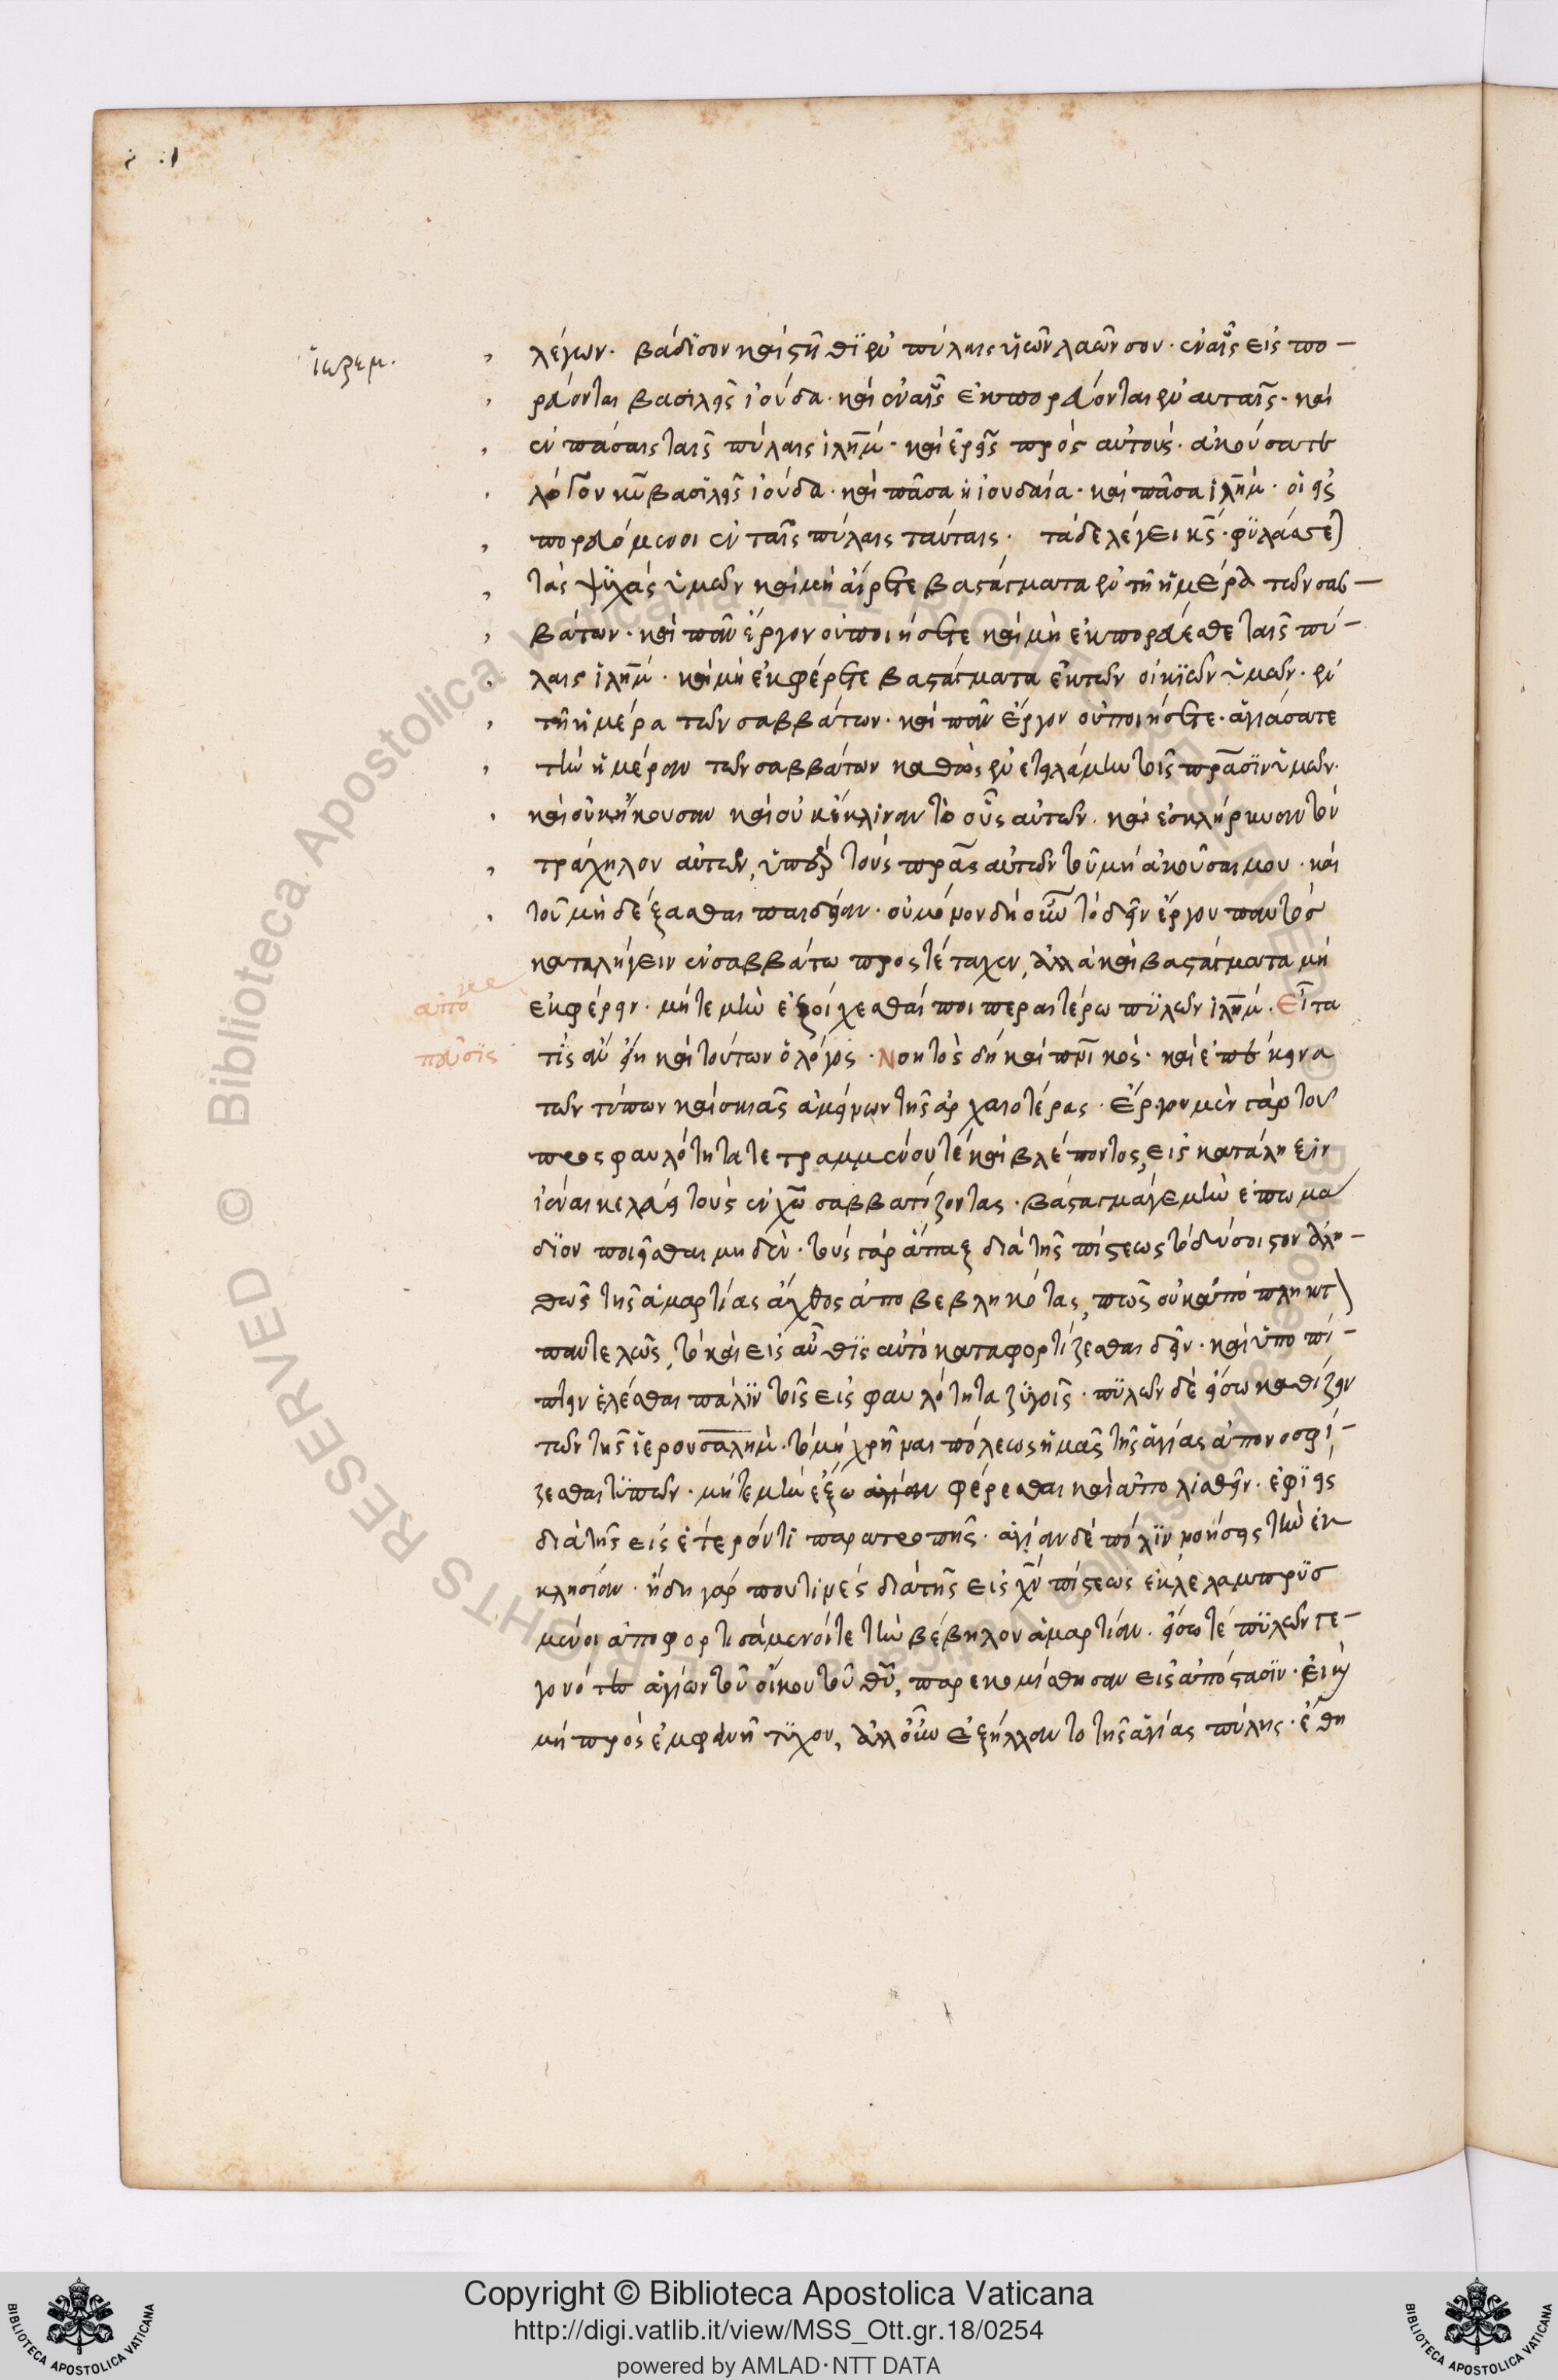 ἱερεμ.
λέγων. βάδισον καὶ στῆθι ἐν πύλαις υἱῶν λαῶν σου. ἐν αἷς εἰσπο-
ρεύονται βασιλεῖς ἰούδα. καὶ ἐν αἷς ἐκπορεύονται ἐν αυταῖς. καὶ
ἐν πάσαις ταῖς πύλαις ἱλῆμ. καὶ ἐρεῖς πρὸς αὐτούς. ἀκούσατε
λόγον κυ βασιλεῖς ἰούδα. καὶ πᾶσα ἡ ἰουδαία. καὶ πᾶσα ἱλῆμ. οἱ εἰσ
πορευόμενοι ἐν ταῖς πύλαις ταύταις. τάδε λέγει κς. φυλάσσεσθε
τὰς ψυχὰς ὑμῶν καὶ μὴ αἴρετε βαστάγματα ἐν τῆ ἡμέρα τῶν σαβ-
βάτων. καὶ πᾶν ἔργον οὐ ποιήσετε καὶ μὴ ἐκπορεύεσθε ταῖς πύ-
λαις ἱλῆμ. καὶ μὴ ἐκφέρετε βαστάγματα ἐκ τῶν οἰκιῶν ὑμῶν. ἐν
τῆ ἡμέρα τῶν σαββάτων. καὶ πᾶν ἔργον οὐ ποιήσετε. ἁγιάσατε
τὴν ἡμέραν τῶν σαββάτων καθὼς ἐνετειλάμην τοῖς πρασιν ὑμῶν.
καὶ οὐκ ἤκουσαν καὶ οὐκ ἔκλιναν τὸ οὖς αὐτῶν. καὶ ἐσκλήρυναν τὸν
τράχηλον αὐτῶν, ὑπὲρ τοὺς πρας αὐτῶν τοῦ μὴ ἀκοῦσαι μου. καὶ
τοῦ μὴ δέξασθαι παιδείαν. οὐ μόνον δὴ οὖν τὸ δεῖν ἔργου παντὸς
καταλήγειν ἐν σαββάτω προστέταχεν, ἀλλὰ καὶ βαστάγματα μὴ
ἐκφέρειν. μήτε μὴν ἐξοίχεσθαί ποι περαιτέρω πυλῶν ἱλῆμ. Εἶτα
ἀπό
παυσις
τίς ἂν εἴη καὶ τούτων ὁ λόγος. Νοητὸς δὴ καὶ πνικός. καὶ ἐπέκεινα
τῶν τύπων καὶ σκιᾶς ἀμείνων τῆς ἀρχαιοτέρας. ἔργου μὲν γὰρ τοῦ
προς φαυλότητα τετραμμένου τέ καὶ βλέποντος, εἰς κατάληξιν
ἰέναι κελεύει τοὺς ἐν χω σαββατίζοντας. βάσταγμά γε μὴν ἐπωμά
διον ποιεῖσθαι μηδέν. τοὺς γὰρ ἅπαξ διὰ τῆς πίστεως τὸ δύσοιστον ἀλη-
θῶς τῆς ἁμαρτίας ἄχθος ἀποβεβληκότας, πῶς οὐκ ἀπόπληκτ
παντελῶς, τὸ καὶ εἰς αὖθις αὐτὸ καταφορτίζεσθαι δεῖν. καὶ ὑποπί-
πτειν ἑλέσθαι πάλιν τοῖς εἰς φαυλότητα ζυγοῖς. πυλῶν δὲ εἴσω καθίζειν
τῶν τῆς ἱερουσαλημ. τὸ μὴ χρῆναι πόλεως ἡμᾶς τῆς ἁγίας ἀπονοσφί-
ζεσθαι τύπων. μήτε μὴν ἔξω φέρεσθαι καὶ ἀπολισθεῖν. ἐφιεὶς
διὰ τῆς εἰς ἑτερόν τι παρατροπῆς. ἁγίαν δὲ πόλιν, νοήσεις τὴν ἐκ
κλησίαν. ἤδη γάρ που τινὲς διὰ τῆς εἰς χν πίστεως ἐκλελαμπρυσ
μένοι ἀποφορτισάμενοί τε τὴν βέβηλον ἁμαρτίαν. εἴσω τέ πυλῶν γε-
γονότες ἁγίων τοῦ οἴκου τοῦ θυ, παρεκομίσθησαν εἰς ἀπόστασιν. εἰ καὶ
μὴ πρὸς ἐμφανῆ τυχον, ἀλλ' οὖν ἐξήλλοντο τῆς ἁγίας πύλης. ἔθη
Copyright © Biblioteca Apostolica Vaticana
http://digi.vatlib.it/view/MSS_Ott.gr.18/0254
powered by AMLAD·NTT DATA